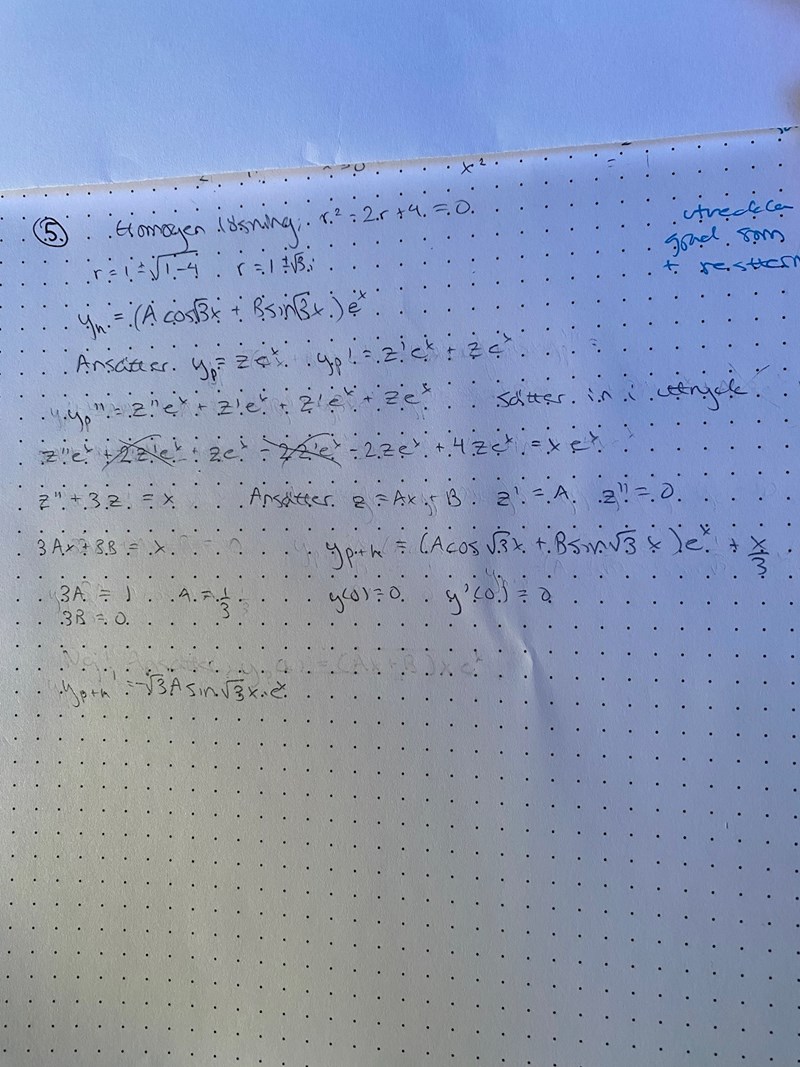 x²
5. Homogen lösning: r² - 2r + 4 = 0.
utveckla
grad som
+ restterm
r = 1 ± √1-4 r = 1 ± √3 i
yh = (A cos√3x + B sin√3x) eˣ
Ansätter yp = zeˣ yp' = z'eˣ + zeˣ
yp'' = z''eˣ + z'eˣ + z'eˣ + zeˣ sätter in i uttryck
z''eˣ + 2z'eˣ + zeˣ - 2z'eˣ - 2zeˣ + 4zeˣ = xeˣ
z'' + 3z = x Ansätter z = Ax + B z' = A z'' = 0
3Ax + 3B = x yp+h = (A cos √3x + B sin √3 x) eˣ + x/3
3A = 1 A = 1/3 y(0) = 0 y'(0) = 0
3B = 0
yp+h' = -√3 A sin √3 x · eˣ